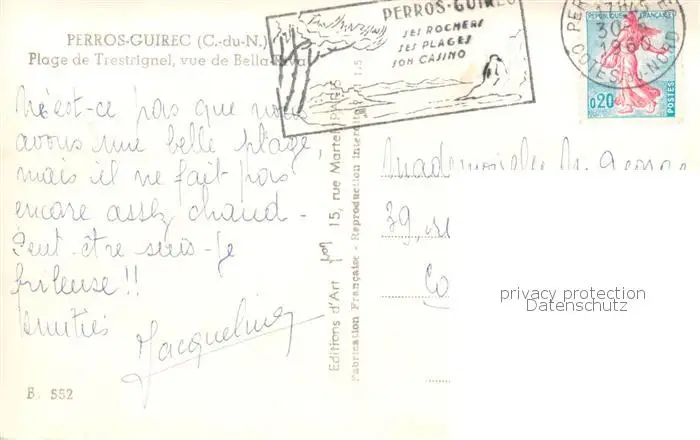 PERROS-GUIREC (C.-du-N.)
Plage de Trestrignel, vue de Bella-Riva
N'est-ce pas que nous
avons une belle plage,
mais il ne fait pas
encore assez chaud -
Peut-être suis-je
frileuse !!
Amitiés
Jacqueline
B. 552
Editions d'Art 15, rue Martel, PARIS
Fabrication Française - Reproduction Interdite
PERROS-GUIREC
SES ROCHERS
SES PLAGES
SON CASINO
17H45
30
1960
COTES-DU-NORD
REPUBLIQUE FRANÇAISE
0,20
POSTES
Mademoiselle
39,
privacy protection
Datenschutz